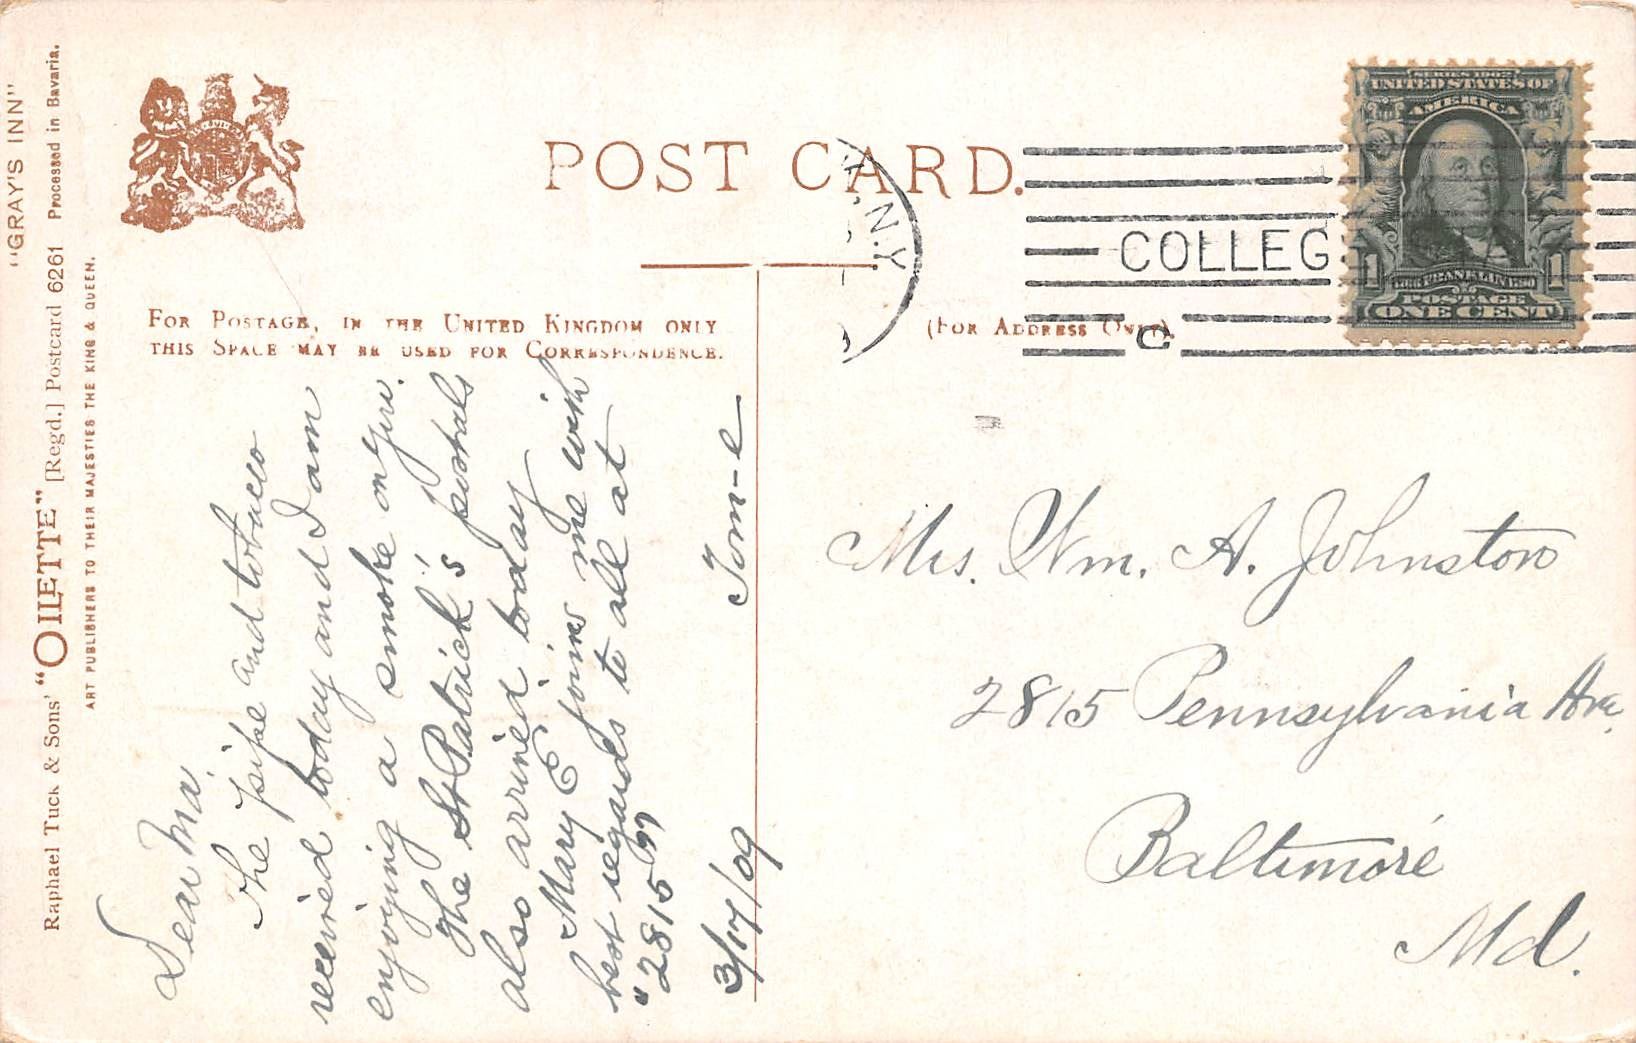 "GRAY'S INN"
Raphael Tuck & Sons' "OILETTE" [Regd.] Postcard 6261 Processed in Bavaria.
ART PUBLISHERS TO THEIR MAJESTIES THE KING & QUEEN.
POST CARD.
FOR POSTAGE, IN THE UNITED KINGDOM ONLY
THIS SPACE MAY BE USED FOR CORRESPONDENCE.
(FOR ADDRESS ONLY)
N.Y.
COLLEG
C
SERIES 1902
UNITED STATES OF
AMERICA
1 FRANKLIN 1
POSTAGE
ONE CENT
Dear Ma,
The pipe and tobacco
received today and I am
enjoying a smoke on you.
The St Patrick's postals
also arrived today
Mary E joins me with
best regards to all at
"2815"
3/17/09 Tom-e
Mrs. Wm. A. Johnston
2815 Pennsylvania Ave,
Baltimore
Md.